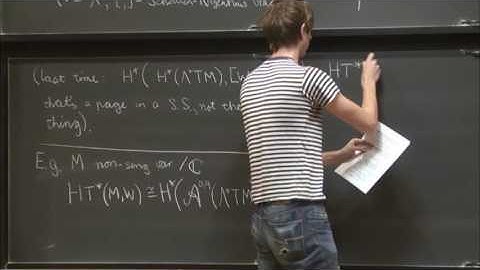 Schouten-Nijenhuis
(last time: H*( H*(Λ*TM), [W HT*
that's a page in a S.S., not the
thing).
E.g. M non-sing var. /ℂ
HT*(M,W) ≅ H*(𝒜^{0,*}(Λ*TM